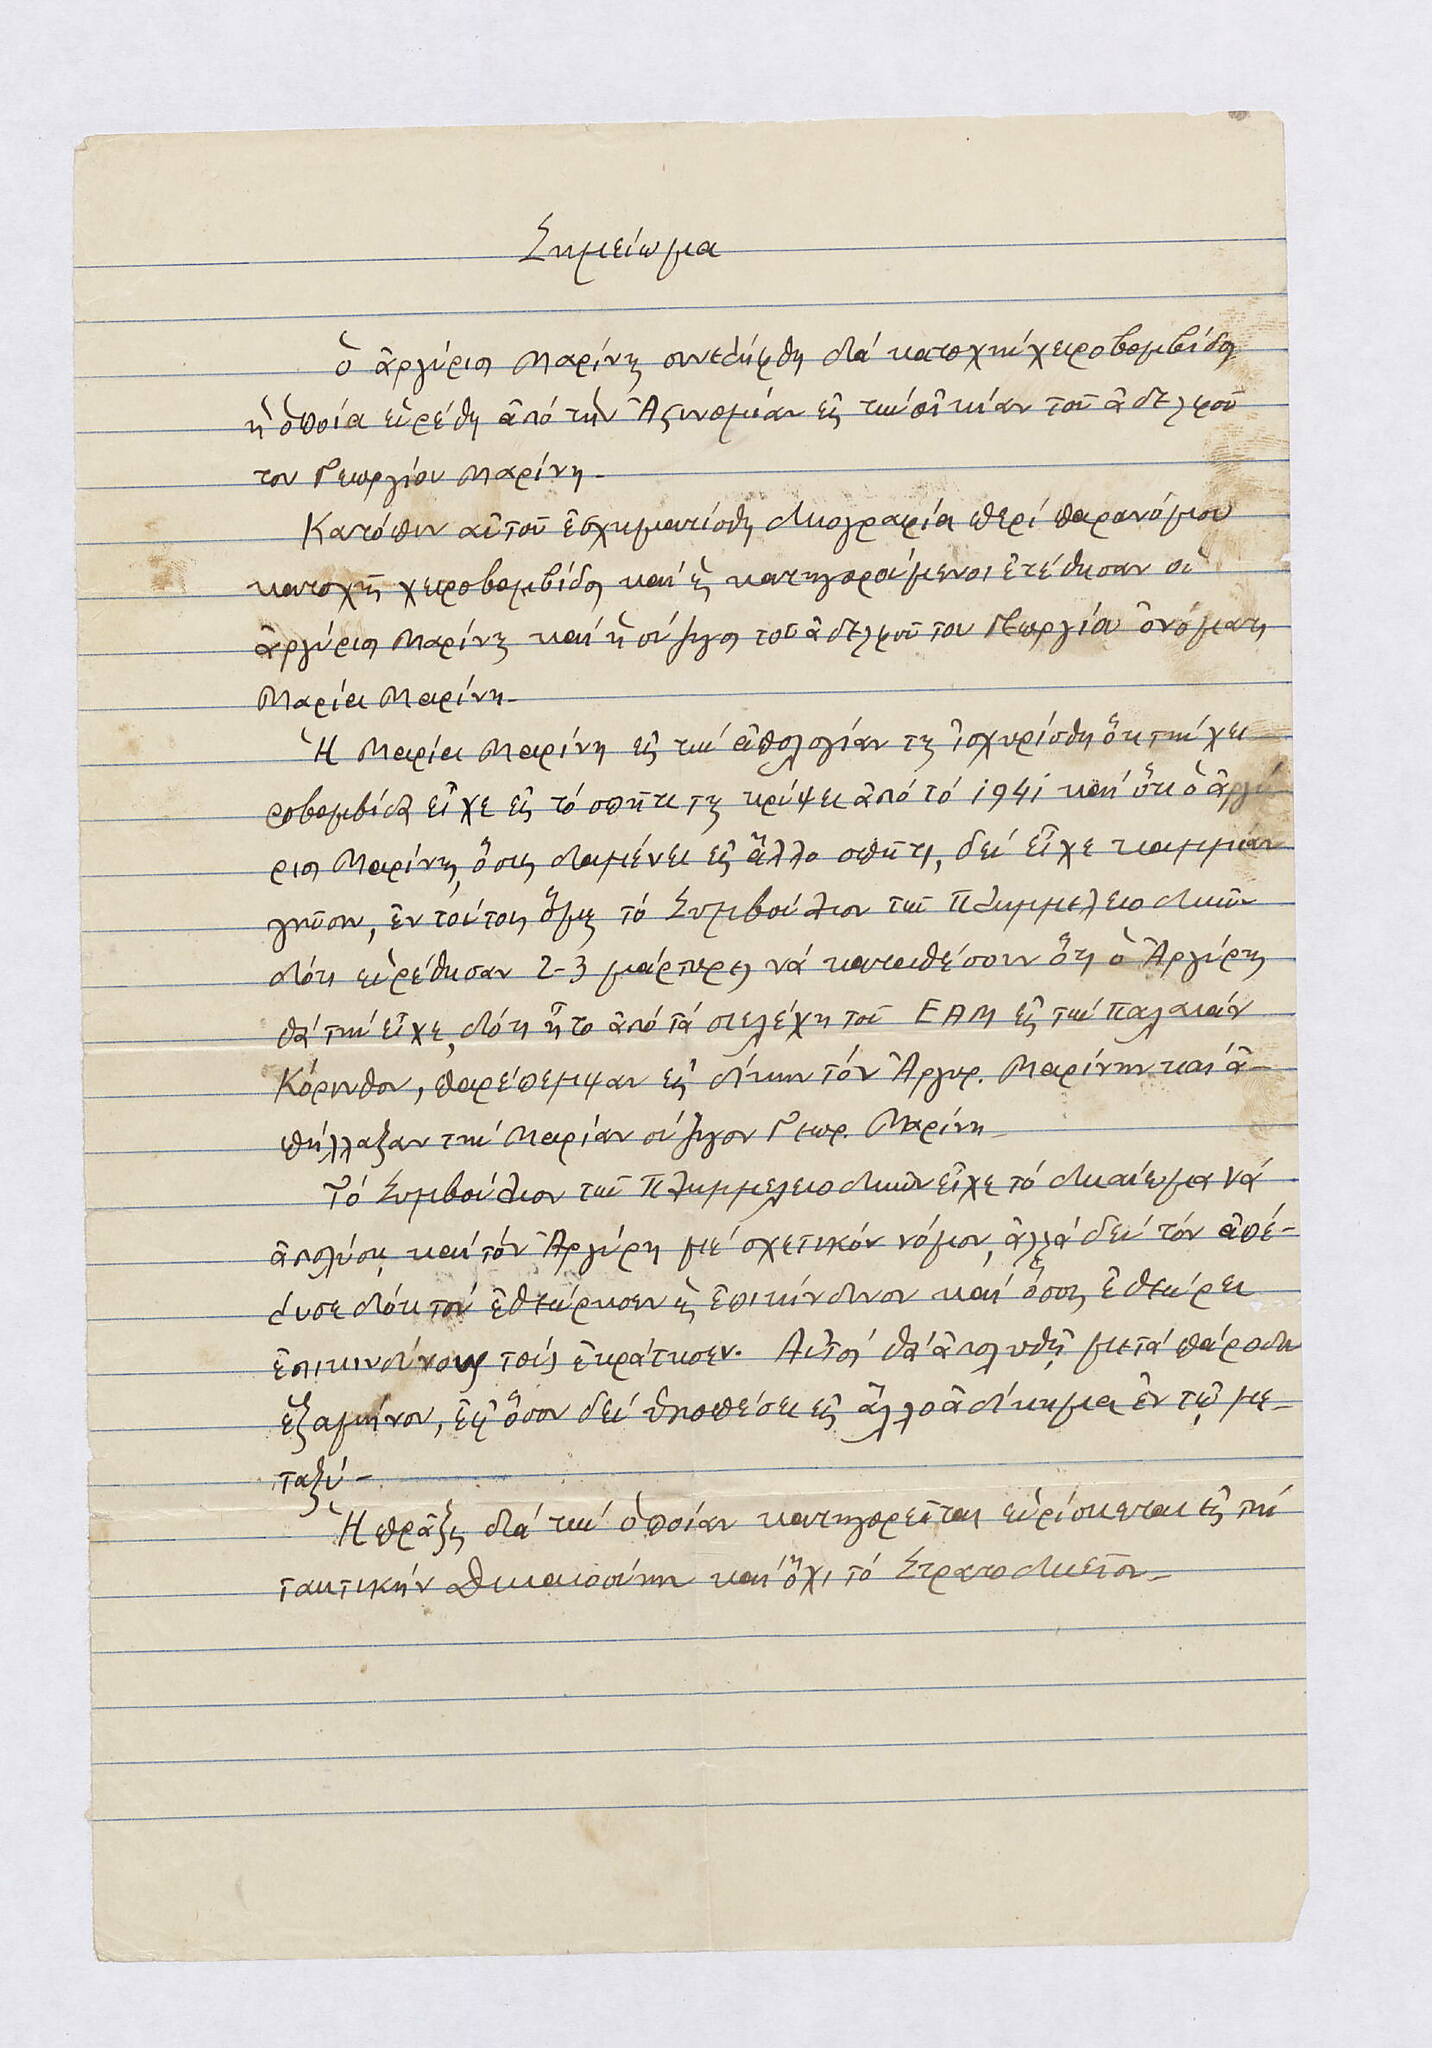 Σημείωμα
Ὁ Ἀργύριος Μαρίνης συνελήφθη διά κατοχήν χειροβομβίδος
ἡ ὁποία εὑρέθη ἀπό τήν Ἀστυνομίαν εἰς τήν οἰκίαν τοῦ ἀδελφοῦ
του Γεωργίου Μαρίνη.-
Κατόπιν αὐτοῦ ἐσχηματίσθη δικογραφία περί παρανόμου
κατοχῆς χειροβομβίδος καί ὡς κατηγορούμενοι ἐτέθησαν οἱ
Ἀργύριος Μαρίνης καί ἡ σύζυγος τοῦ ἀδελφοῦ του Γεωργίου ὀνόματι
Μαρία Μαρίνη.-
Ἡ Μαρία Μαρίνη εἰς τήν ἀπολογίαν της ἰσχυρίσθη ὅτι τήν χει-
ροβομβίδα εἶχε εἰς τό σπῆτι της κρύψει ἀπό τό 1941 καί ὅτι ὁ Ἀργύ-
ριος Μαρίνης, ὅστις διαμένει εἰς ἄλλο σπῆτι, δέν εἶχε καμμίαν
γνῶσιν, ἐν τούτοις ὅμως τό Συμβούλιον τῶν Πλημμελειοδικῶν
διότι εὑρέθησαν 2-3 μάρτυρες νά καταθέσουν ὅτι ὁ Ἀργύρης
θά τήν εἶχε, διότι ἦτο ἀπό τά στελέχη τοῦ ΕΑΜ εἰς τήν Παλαιάν
Κόρινθον, παρέπεμψαν εἰς δίκην τόν Ἀργυρ. Μαρίνην καί ἀ-
πήλλαξαν τήν Μαρίαν σύζυγον Γεωρ. Μαρίνη.-
Τό Συμβούλιον τῶν Πλημμελειοδικῶν εἶχε τό δικαίωμα νά
ἀπολύσῃ καί τόν Ἀργύρη μέ σχετικόν νόμον, ἀλλά δέν τόν ἀπέ-
λυσε διότι τόν ἐθεώρησεν ὡς ἐπικίνδυνον καί ὅσους ἐθεώρει
ἐπικινδύνους τούς ἐκράτησεν. Αὐτός θά ἀπολυθῇ μετά πάροδον
ἑξαμήνου, ἐφ' ὅσον δέν ὑποπέσει εἰς ἄλλο ἀδίκημα ἐν τῷ με-
ταξύ.-
Ἡ πρᾶξις διά τήν ὁποίαν κατηγορεῖται εὑρίσκεται εἰς τήν
τακτικήν Δικαιοσύνην καί ὄχι τό Στρατοδικεῖον.-